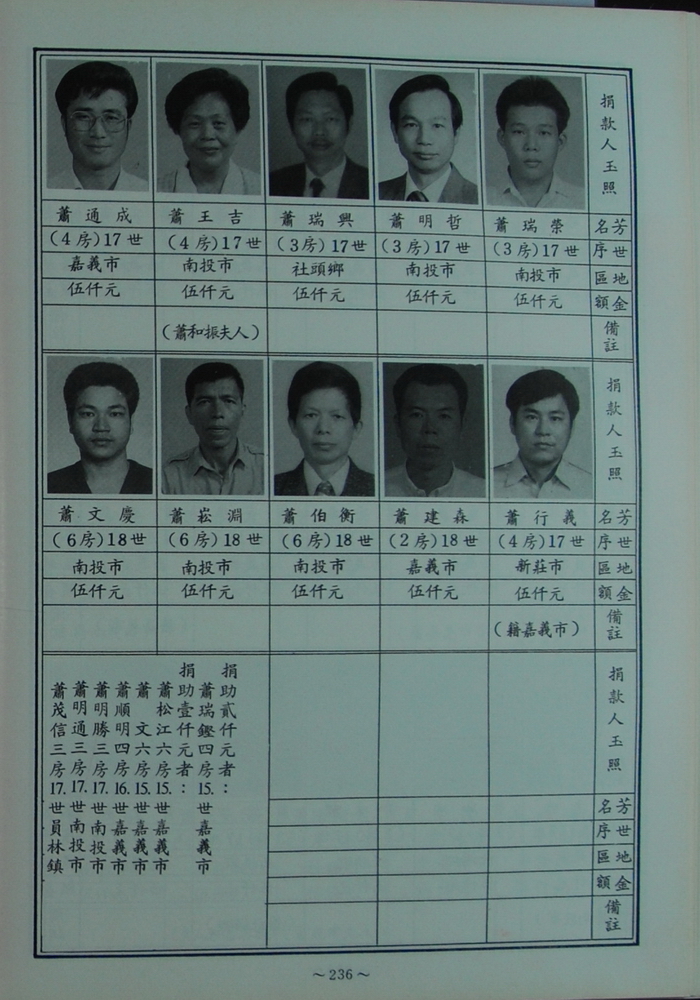 捐款人玉照
芳名 蕭瑞榮 蕭明哲 蕭瑞興 蕭王吉 蕭通成
世序 (3房)17世 (3房)17世 (3房)17世 (4房)17世 (4房)17世
地區 南投市 南投市 社頭鄉 南投市 嘉義市
金額 伍仟元 伍仟元 伍仟元 伍仟元 伍仟元
備註 (蕭和振夫人)
捐款人玉照
芳名 蕭行義 蕭建森 蕭伯衡 蕭崧淵 蕭文慶
世序 (4房)17世 (2房)18世 (6房)18世 (6房)18世 (6房)18世
地區 新莊市 嘉義市 南投市 南投市 南投市
金額 伍仟元 伍仟元 伍仟元 伍仟元 伍仟元
備註 (籍嘉義市)
捐款人玉照
芳名
世序
地區
金額
備註
捐助貳仟元者：
蕭瑞鏗四房15.世嘉義市
捐助壹仟元者：
蕭松江六房15.世嘉義市
蕭文六房15.世嘉義市
蕭順明四房16.世嘉義市
蕭明勝三房17.世南投市
蕭明通三房17.世南投市
蕭茂信三房17.世員林鎮
～236～